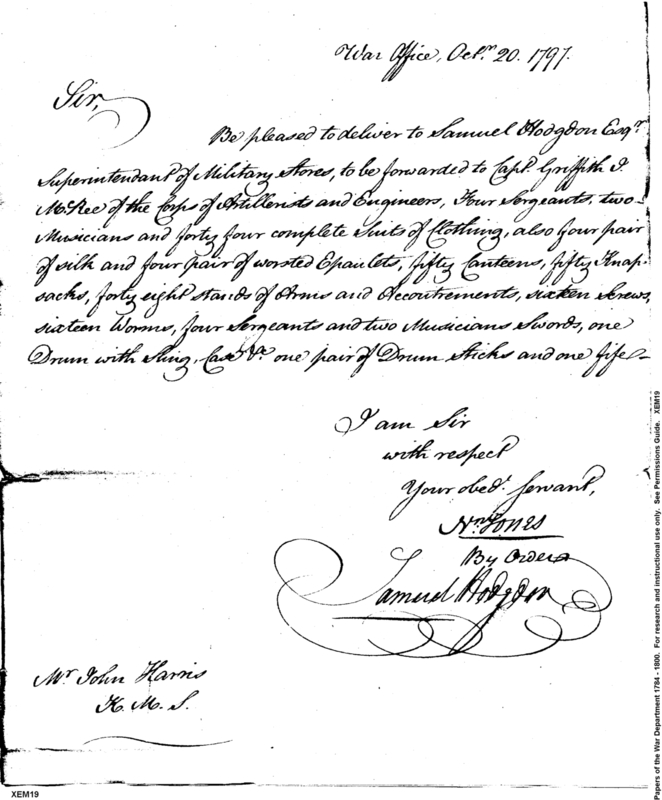 War Office, Octr. 20. 1797.
Sir,
Be pleased to deliver to Samuel Hodgdon Esqr.
Superintendant of Military Stores, to be forwarded to Capt. Griffith J.
McRee of the Corps of Artillerists and Engineers, Four Sergeants, two
Musicians and forty four complete Suits of Clothing, also four pair
of silk and four pair of worsted Epaulets, fifty Canteens, fifty Knap-
sacks, forty eight stands of Arms and Accoutrements, sixteen Screws,
sixteen Worms, four Sergeants and two Musicians Swords, one
Drum with Sling, Case &c. one pair of Drum Sticks and one fife
I am Sir
with respect
Your obedt. Servant,
Jones
By Order
Samuel Hodgdon
Mr John Harris
K. M. S.
XEM19
Papers of the War Department 1784 - 1800. For research and instructional use only. See Permissions Guide. XEM19